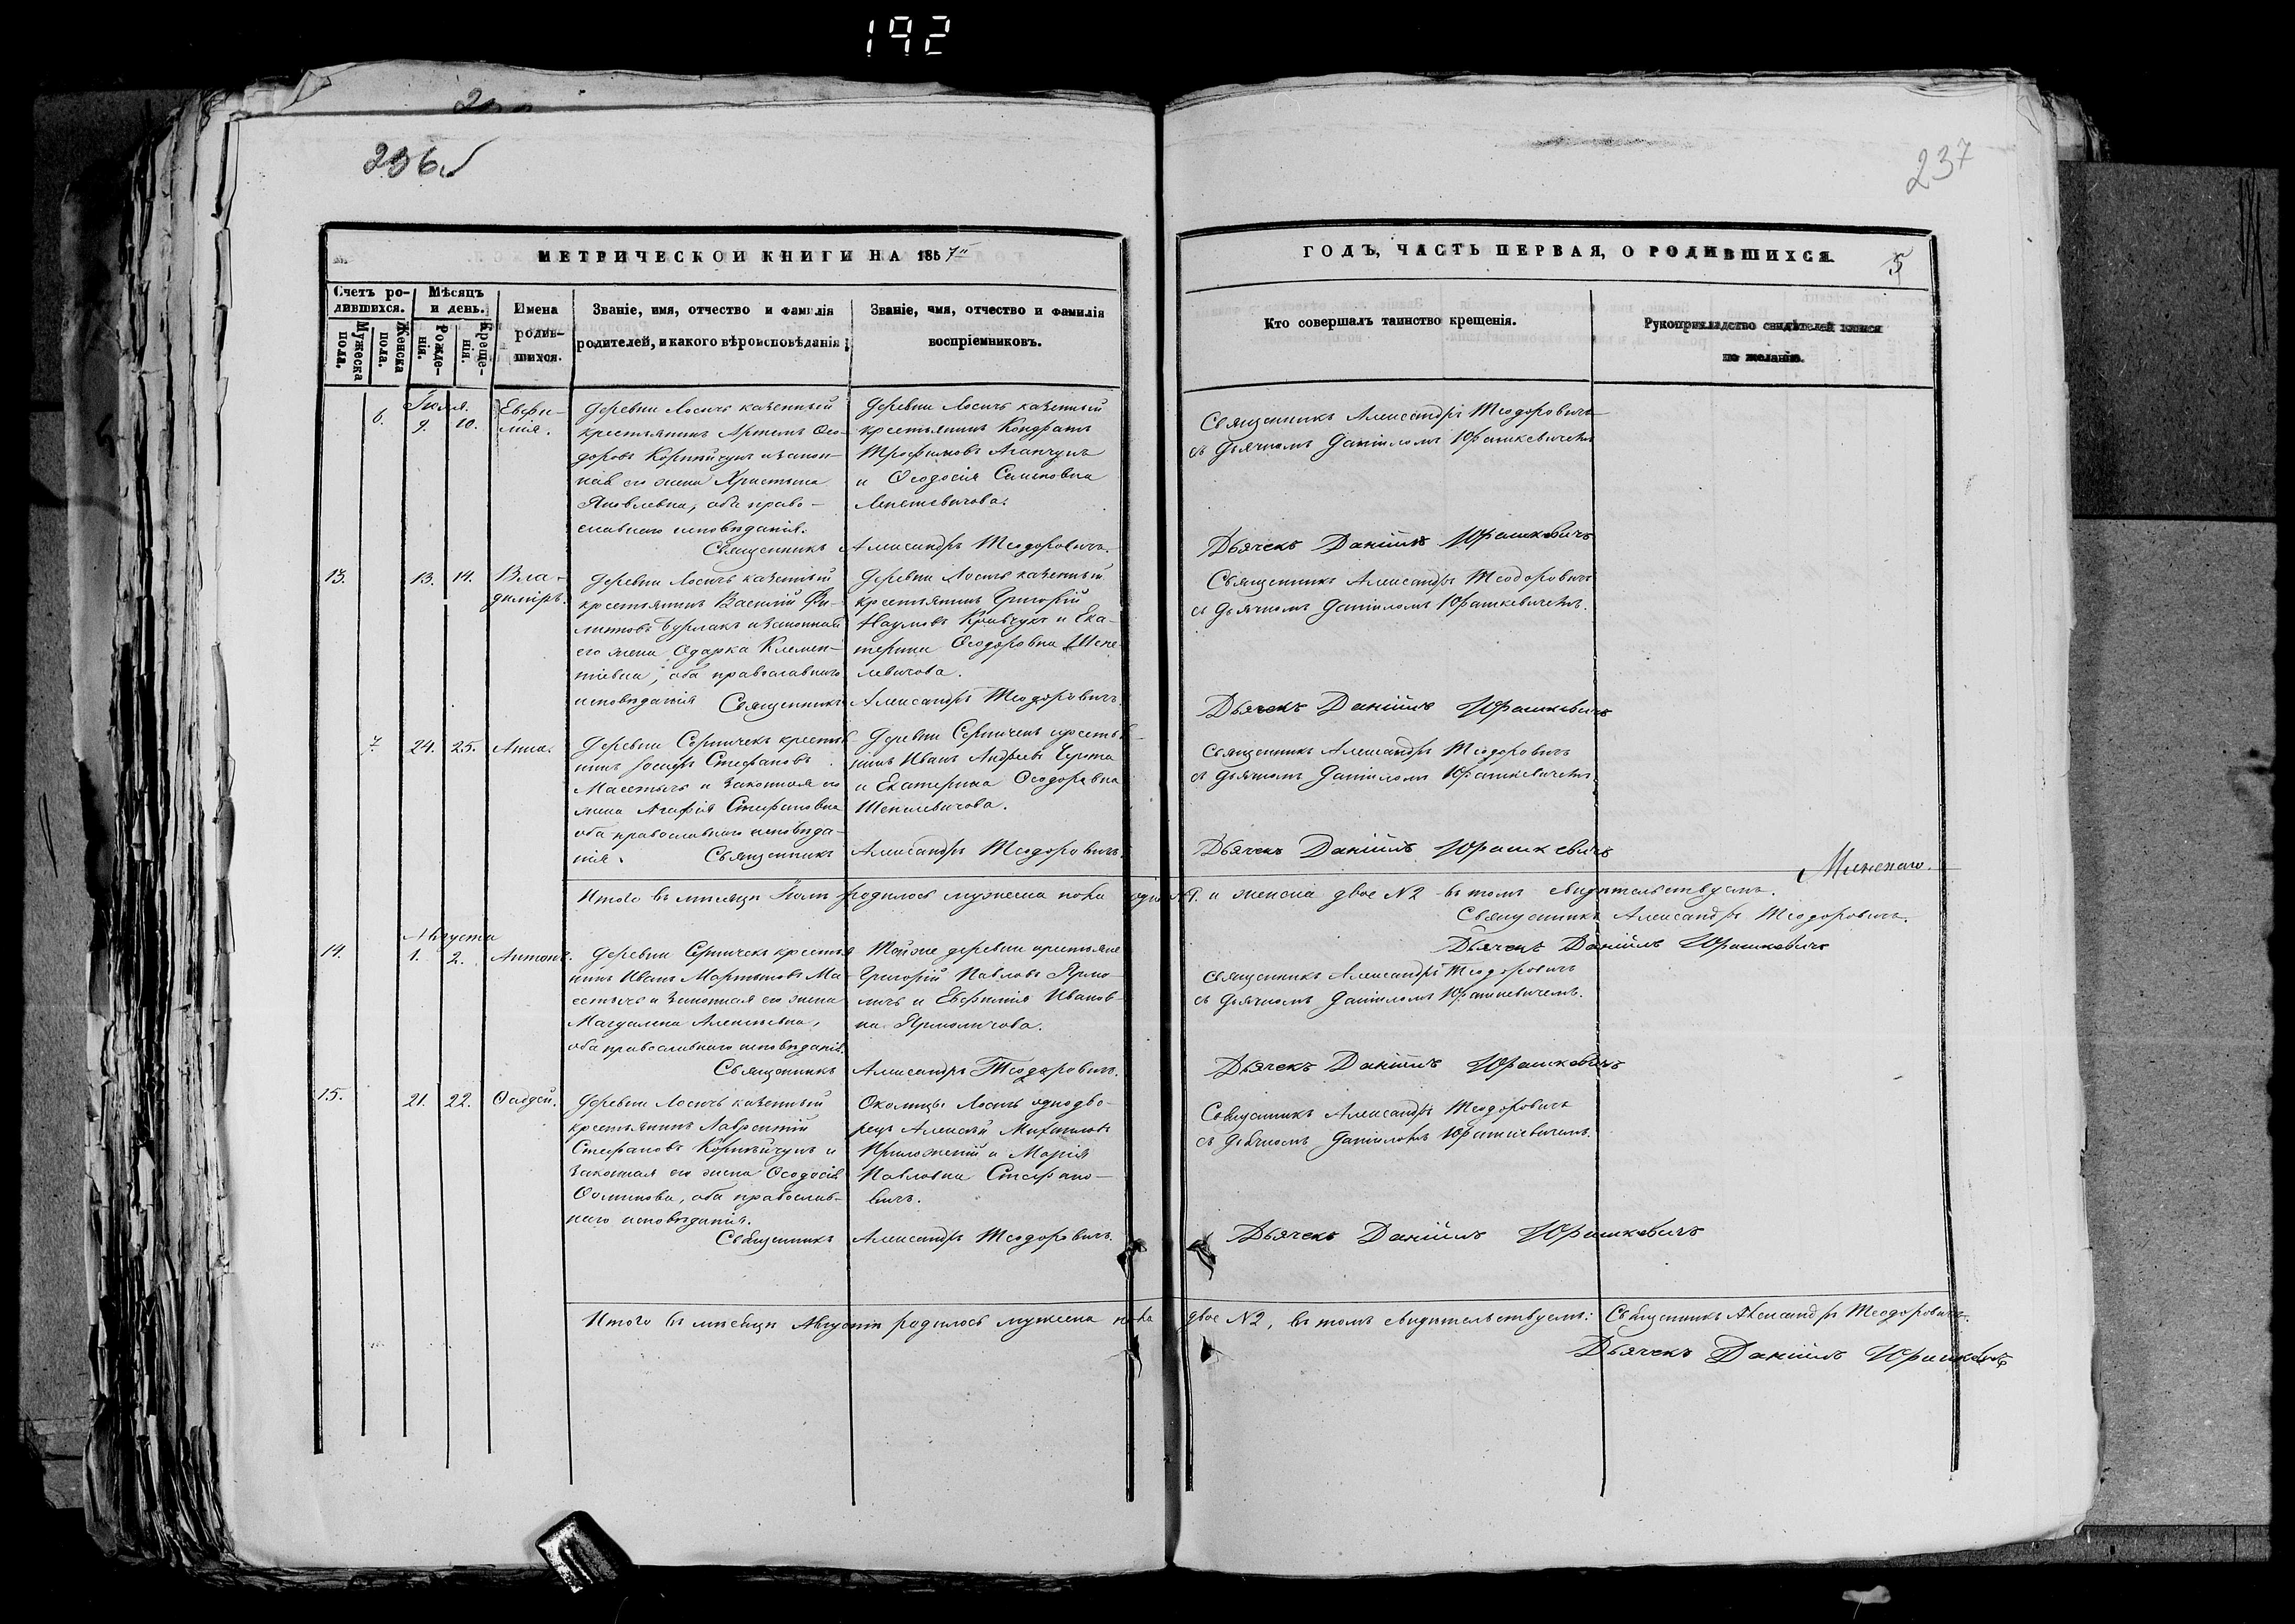 192
236
237
МЕТРИЧЕСКОЙ КНИГИ НА 1857
ГОДЪ, ЧАСТЬ ПЕРВАЯ, О РОДИВШИХСЯ.
5
Счетъ ро-
дившихся.
Мужеска пола.
Женска пола.
Мѣсяцъ
и день.
Рожде-
нія.
Креще-
нія.
Имена
родив-
шихся.
Званіе, имя, отчество и фамилія
родителей, и какого вѣроисповѣданія
Званіе, имя, отчество и фамилія
воспріемниковъ.
Кто совершалъ таинство крещенія.
Рукоприкладство свидѣтелей записи
по желанію.
6.
Іюля.
9. 10.
Евфи-
мія.
Деревни Лосичъ казенный
крестьянинъ Артемъ Ѳео-
доровъ Корнейчукъ и закон-
ная его жена Христина
Яковлевна, оба право-
славнаго исповѣданія.
Деревни Лосичъ казенный
крестьянинъ Кондратъ
Трофимовъ Аганчукъ
и Ѳеодосія Семеновна
Священникъ Александръ Теодоровичъ
съ дьячкомъ Даніиломъ Юрашкевичемъ
Священникъ Александръ Теодоровичъ.
Дьячекъ Даніилъ Юрашкевичъ
13.
13. 14.
Вла-
диміръ.
Деревни Лосичъ казенный
крестьянинъ Василій Фи-
липповъ Бурлакъ и законная
его жена Одарка Климен-
тіевна, оба православнаго
исповѣданія
Деревни Лосичъ казенный
крестьянинъ Григорій
Наумовъ Кравчукъ и Ека-
терина Ѳеодоровна Шепе-
левичова.
Священникъ Александръ Теодоровичъ
съ дьячкомъ Даніиломъ Юрашкевичемъ.
Священникъ Александръ Теодоровичъ.
Дьячекъ Даніилъ Юрашкевичъ
7.
24. 25.
Анна.
Деревни Серничекъ крестья-
нинъ Іосифъ Стефановъ
Масетычъ и законная его
жена Агафія Стефановна
оба православнаго исповѣда-
нія.
Деревни Серничекъ крестья-
нинъ Иванъ Андреевъ
и Екатерина Ѳеодоровна
Шепелевичова.
Священникъ Александръ Теодоровичъ
съ дьячкомъ Даніиломъ Юрашкевичемъ.
Священникъ Александръ Теодоровичъ.
Дьячекъ Даніилъ Юрашкевичъ
Итого въ мѣсяцѣ Іюлѣ родилось мужеска пола одинъ №1. и женска двое №2 въ томъ свидѣтельствуемъ.
Священникъ Александръ Теодоровичъ.
Дьячекъ Даніилъ Юрашкевичъ
14.
Августа
1. 2.
Антонъ.
Деревни Серничекъ крестья-
нинъ Иванъ Мартыновъ Ма-
сетычъ и законная его жена
Магдалена Алексѣевна,
оба православнаго исповѣданія.
Той же деревни крестьяне
Григорій Павловъ Ярмо-
личъ и Евфимія Иванов-
на Ярмоличова.
Священникъ Александръ Теодоровичъ
съ дьячкомъ Даніиломъ Юрашкевичемъ.
Священникъ Александръ Теодоровичъ.
Дьячекъ Даніилъ Юрашкевичъ
15.
21. 22.
Ѳаддей.
Деревни Лосичъ казенный
крестьянинъ Лаврентій
Стефановъ Корнейчукъ и
законная его жена Ѳеодосія
Ѳоминова, оба православ-
наго исповѣданія.
Околицы Лосичъ однодво-
рецъ Алексѣй Михайловъ
и Марія
Павловна Стефано-
вичъ.
Священникъ Александръ Теодоровичъ
съ дьячкомъ Даніиломъ Юрашкевичемъ.
Священникъ Александръ Теодоровичъ.
Дьячекъ Даніилъ Юрашкевичъ
Итого въ мѣсяцѣ Августѣ родилось мужеска пола двое №2, въ томъ свидѣтельствуемъ: Священникъ Александръ Теодоровичъ.
Дьячекъ Даніилъ Юрашкевичъ